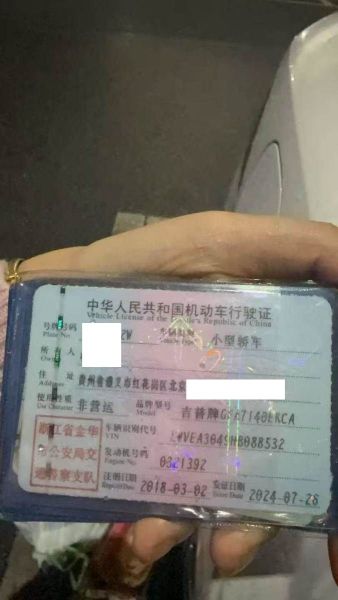 中华人民共和国机动车行驶证
Vehicle License of the People's Republic of China
号牌号码 2W 车辆类型 小型轿车
Plate No. Vehicle Type
所 有 人
住 址 贵州省遵义市红花岗区北京
Address
使用性质 非营运 品牌型号 吉普牌
Use Character Model
浙江省金华
市公安局交
通警察支队
车辆识别代号
VIN
发动机号码 0321392
Engine No.
注册日期 2018-03-02 发证日期 2024-07-26
Register Date Issue Date